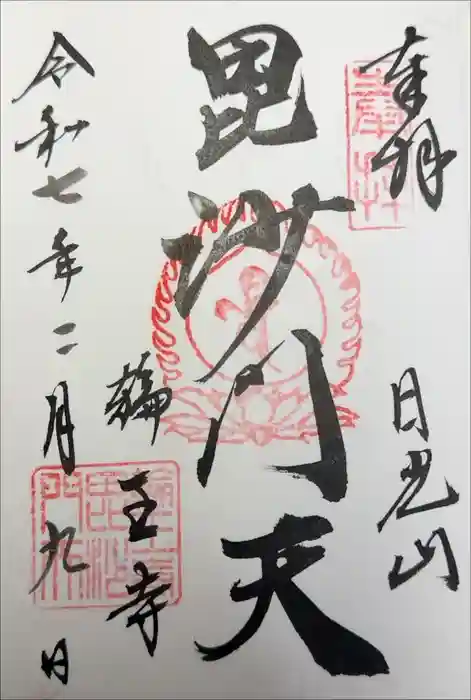 奉拝
日光山
毘沙門天
輪王寺
令和七年二月九日